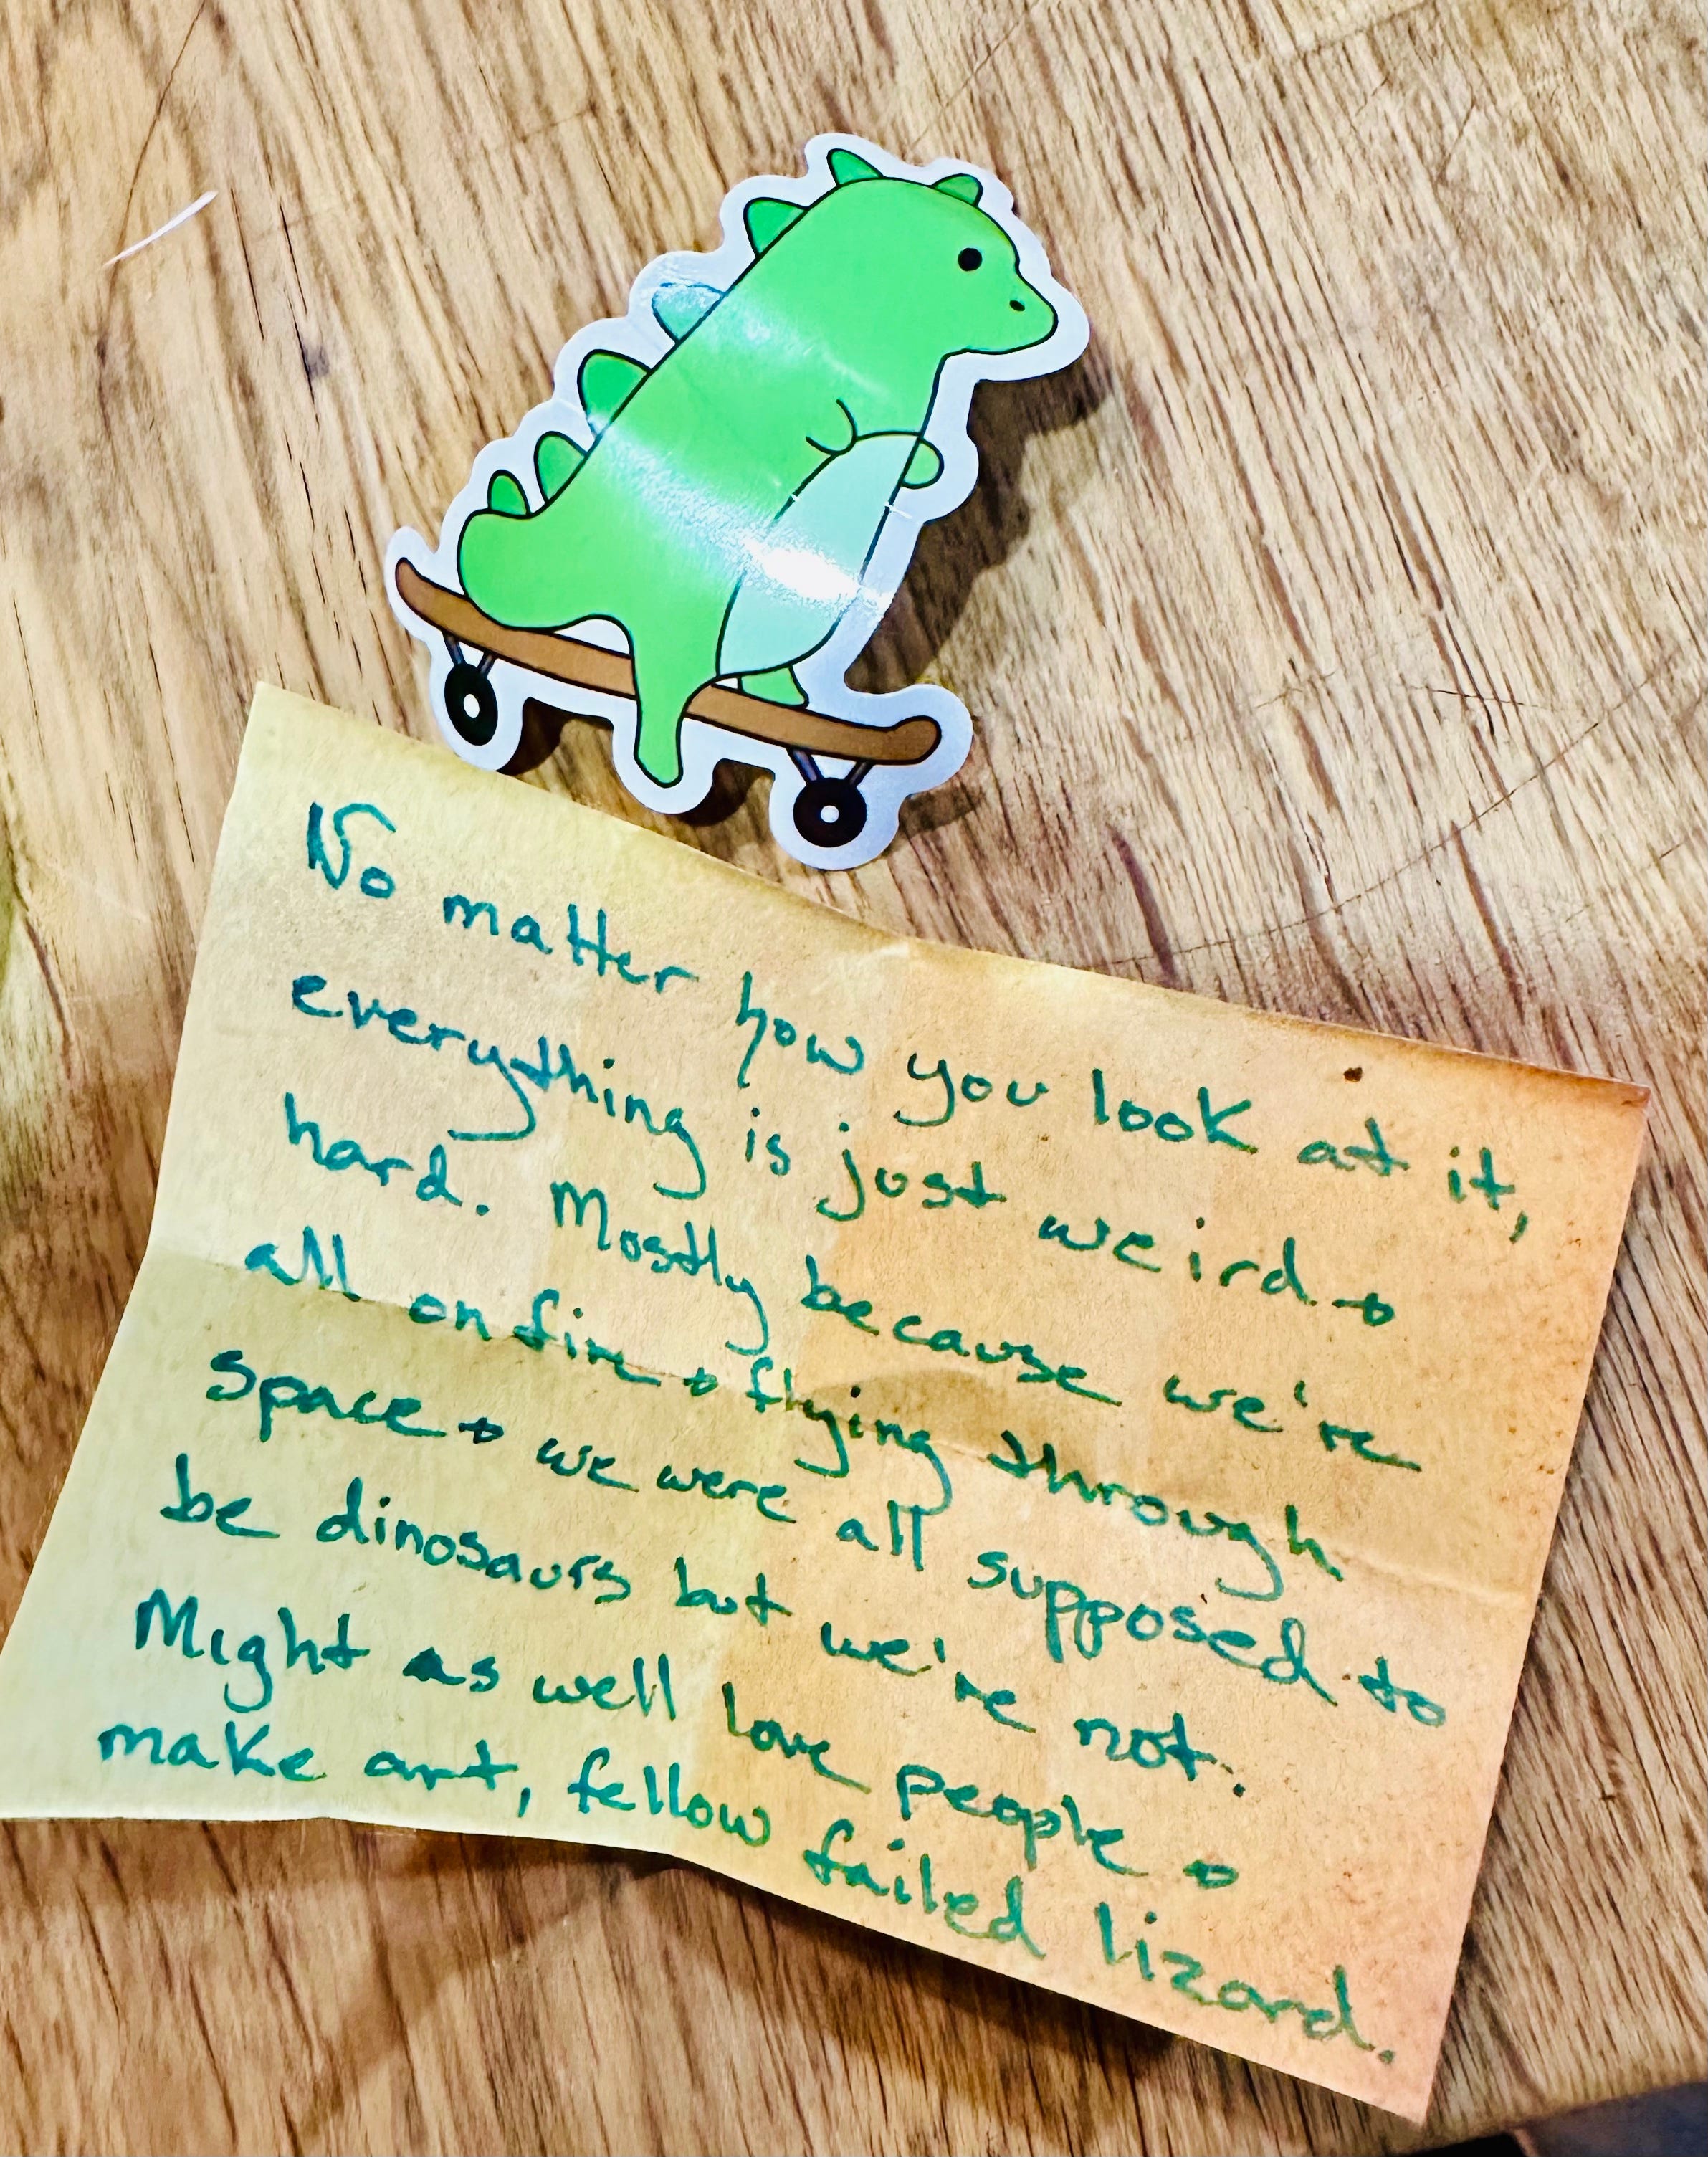 No matter how you look at it,
everything is just weird +
hard. Mostly because we're
all on fire + flying through
space + we were all supposed to
be dinosaurs but we're not.
Might as well love people +
make art, fellow failed lizard.